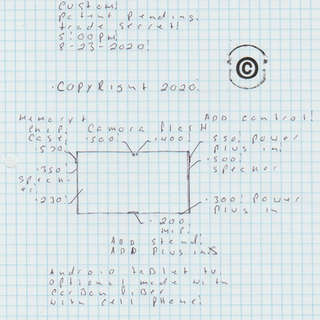 Custom!
Patent Pending!
Trade Secret!
5:00 PM!
8-23-2020!
©
·COPYRight 2020!
Memory
chip!
Case!
Camera flash
ADD control!
.500!
.400!
.570!
.550! Power
Plus in!
.350!
Speck-
er!
.500!
specker
.230!
.300! Power
Plus in
.200
mic!
ADD Stand!
ADD Plus ins
Android tablet tv.
Optional made with
Carbon fiber
with cell phone!